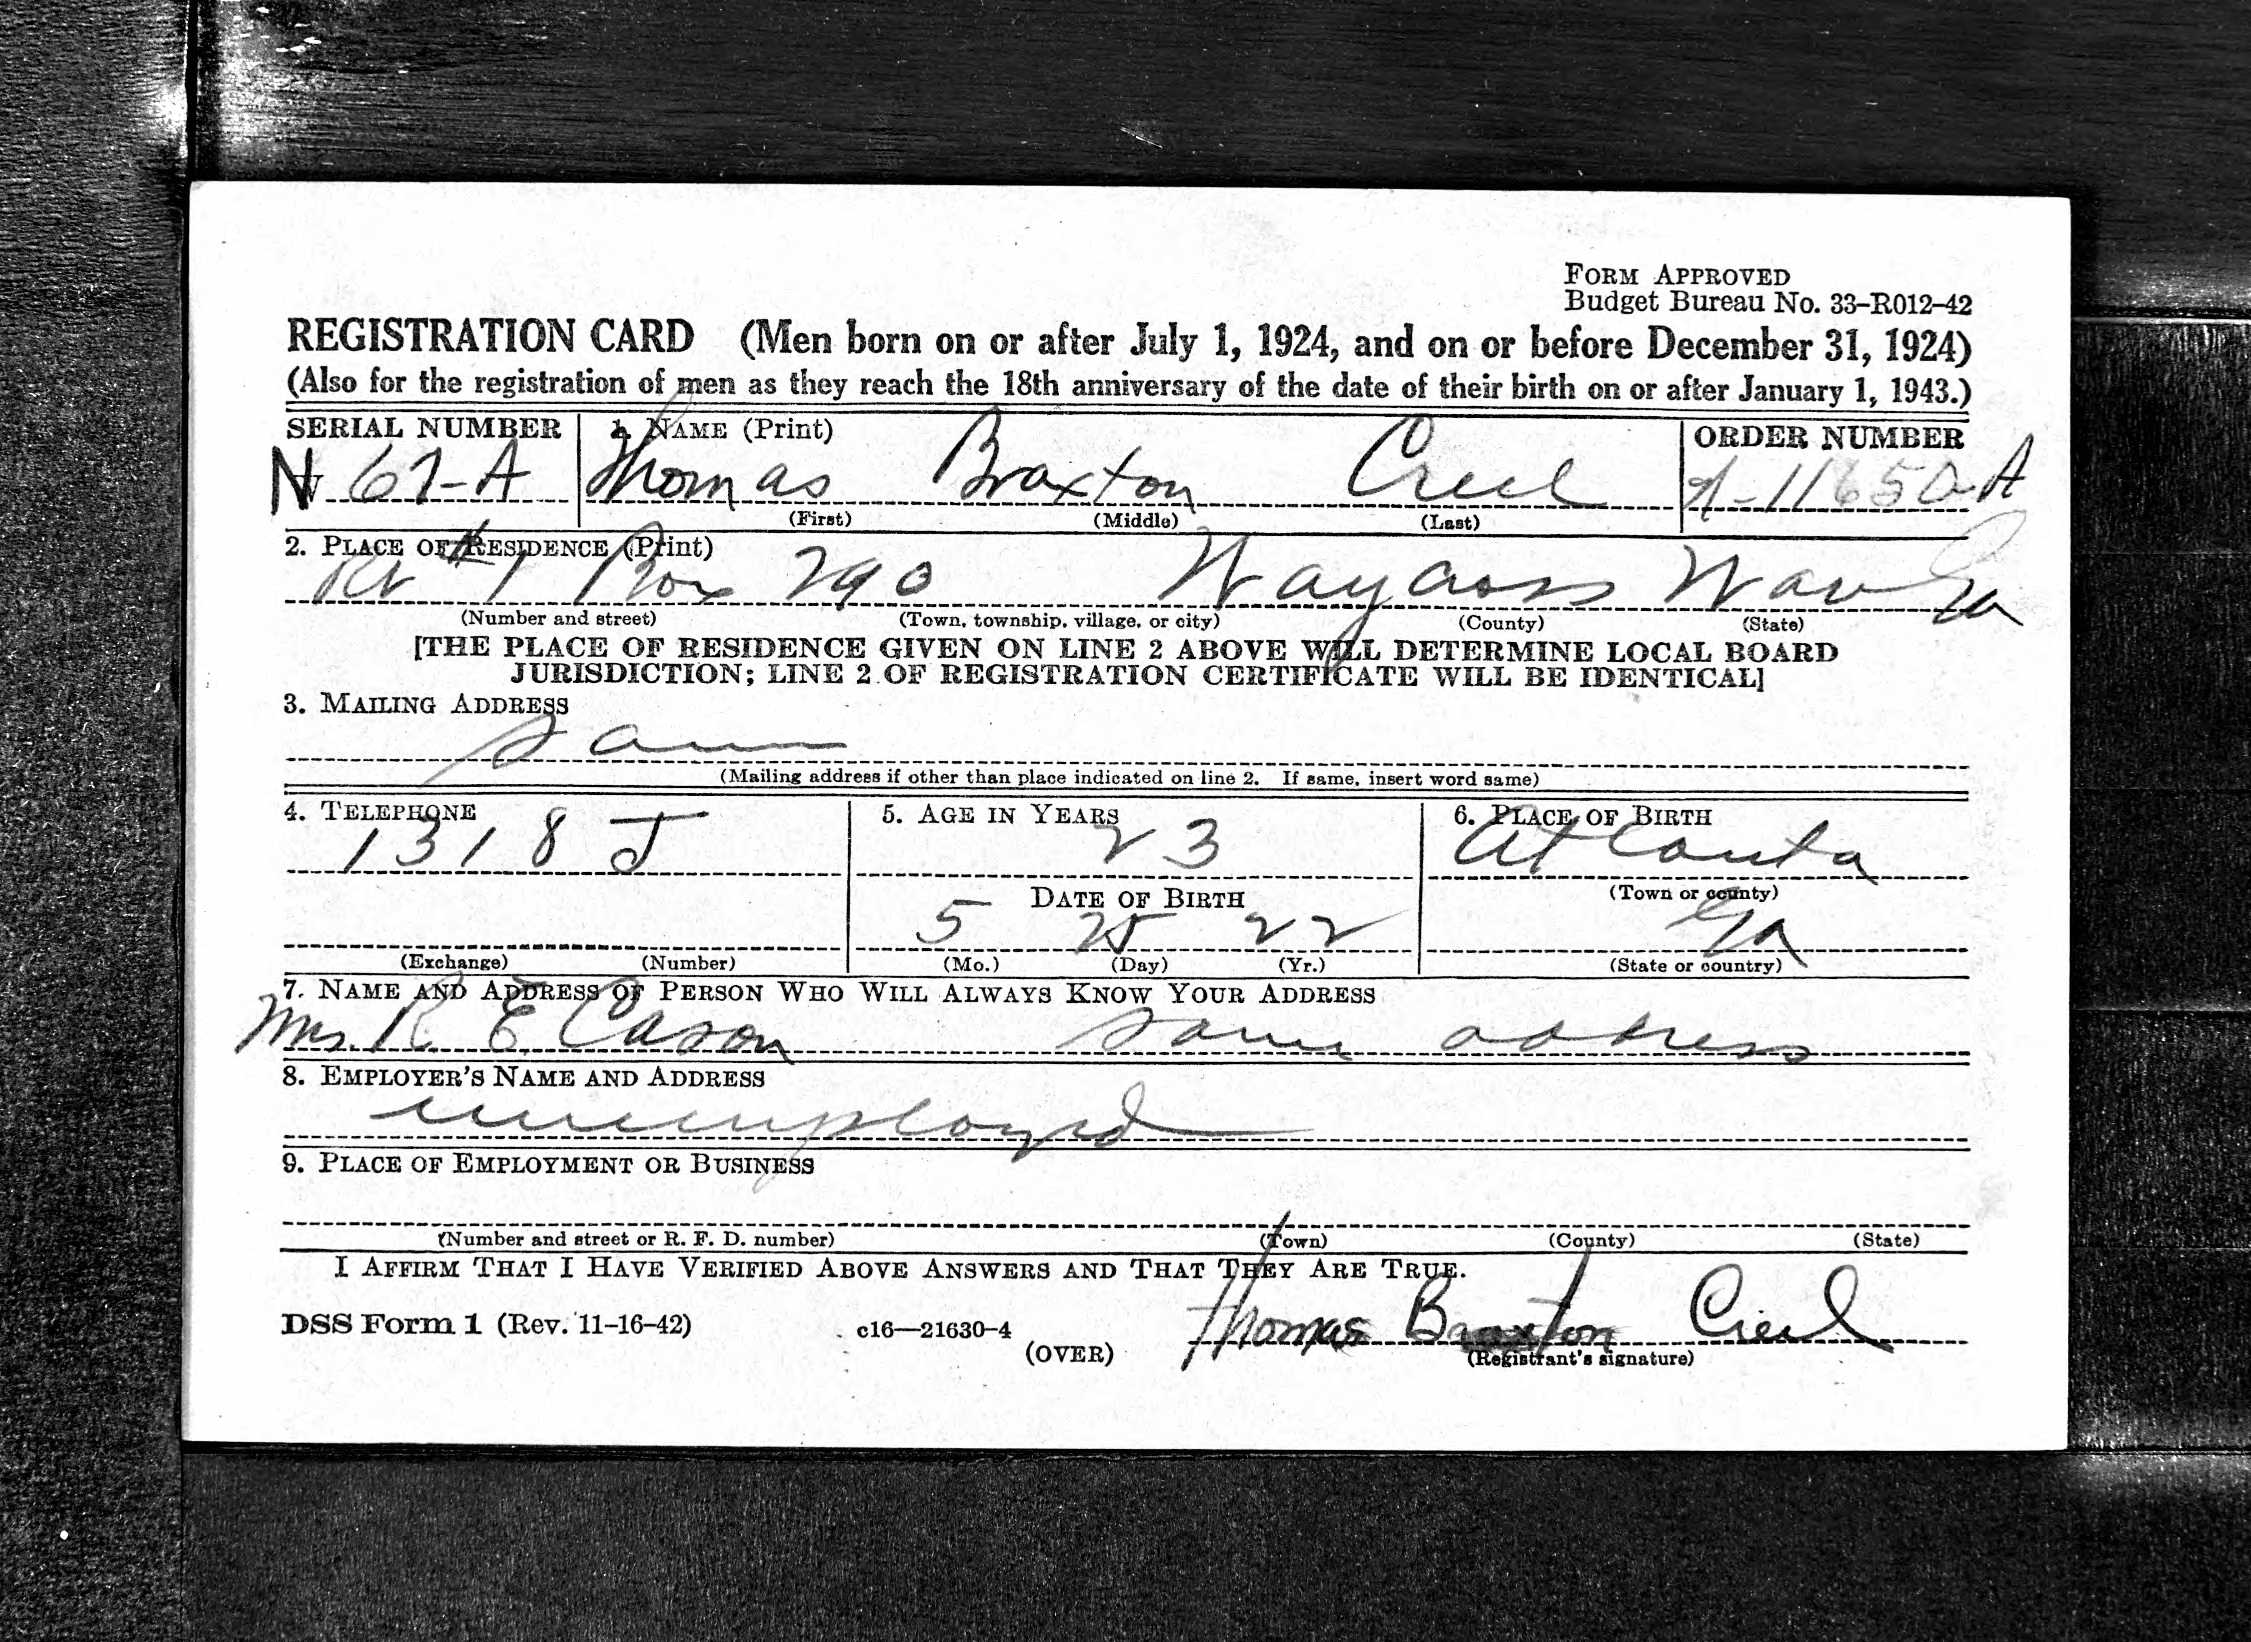 FORM APPROVED
Budget Bureau No. 33–R012–42
REGISTRATION CARD (Men born on or after July 1, 1924, and on or before December 31, 1924)
(Also for the registration of men as they reach the 18th anniversary of the date of their birth on or after January 1, 1943.)
SERIAL NUMBER 1. NAME (Print) ORDER NUMBER
W 67-A Thomas Braxton Creel 11650-A
(First) (Middle) (Last)
2. PLACE OF RESIDENCE (Print)
Rt #1 Box 290 Waycross Ware Ga
(Number and street) (Town, township, village, or city) (County) (State)
[THE PLACE OF RESIDENCE GIVEN ON LINE 2 ABOVE WILL DETERMINE LOCAL BOARD
JURISDICTION; LINE 2 OF REGISTRATION CERTIFICATE WILL BE IDENTICAL]
3. MAILING ADDRESS
Same
(Mailing address if other than place indicated on line 2. If same, insert word same)
4. TELEPHONE 5. AGE IN YEARS 6. PLACE OF BIRTH
1318 J 23 Atlanta
DATE OF BIRTH (Town or county)
5 25 22 Ga
(Exchange) (Number) (Mo.) (Day) (Yr.) (State or country)
7. NAME AND ADDRESS OF PERSON WHO WILL ALWAYS KNOW YOUR ADDRESS
Mrs. R E Cason Same address
8. EMPLOYER'S NAME AND ADDRESS
unemployed
9. PLACE OF EMPLOYMENT OR BUSINESS
(Number and street or R. F. D. number) (Town) (County) (State)
I AFFIRM THAT I HAVE VERIFIED ABOVE ANSWERS AND THAT THEY ARE TRUE.
DSS Form 1 (Rev. 11–16–42) c16—21630-4 (OVER) Thomas Braxton Creel
(Registrant's signature)